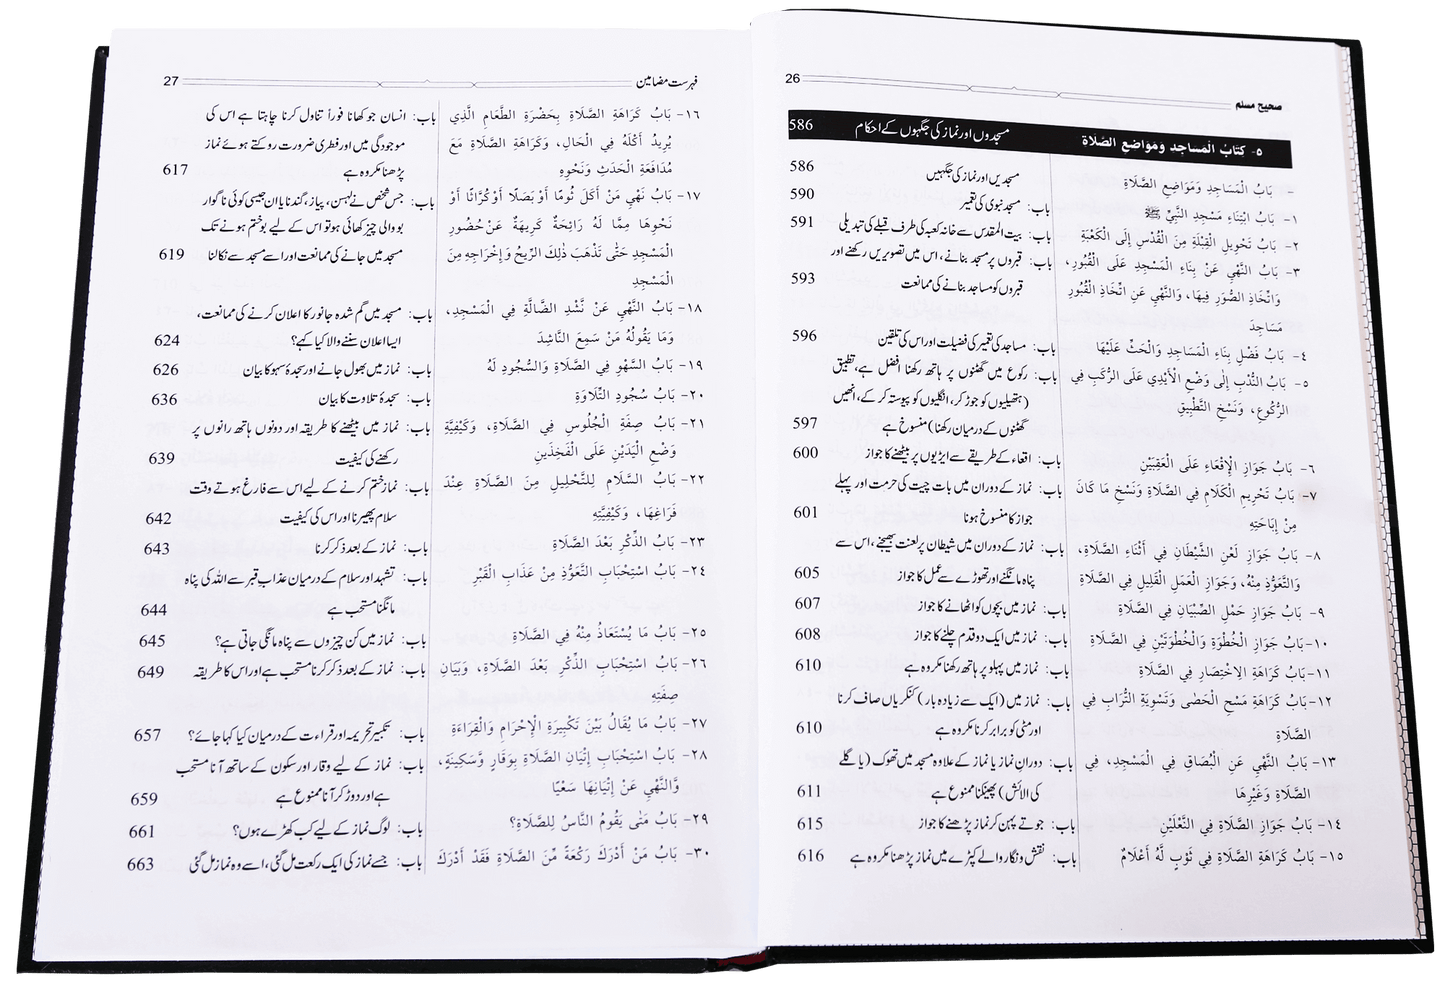 صحيح مسلم 26
٥- كتابُ الْمَساجِد وَمَوَاضعِ الصَّلاة مسجدوں اور نماز کی جگہوں کے احکام 586
- بَابُ الْمَسَاجِدِ وَمَوَاضِعِ الصَّلَاةِ مسجدیں اور نماز کی جگہیں 586
١- بَابُ ابْتِنَاءِ مَسْجِدِ النَّبِيِّ ﷺ باب: مسجد نبوی کی تعمیر 590
٢- بَابُ تَحْوِيلِ الْقِبْلَةِ مِنَ الْقُدْسِ إِلَى الْكَعْبَةِ باب: بیت المقدس سے خانہ کعبہ کی طرف قبلے کی تبدیلی 591
٣- بَابُ النَّهْيِ عَنْ بِنَاءِ الْمَسْجِدِ عَلَى الْقُبُورِ، باب: قبروں پر مسجد بنانے، اس میں تصویریں رکھنے اور
وَاتْخَاذِ الصُّوَرِ فِيهَا، وَالنَّهْيِ عَنِ اتْخَاذِ الْقُبُورِ قبروں کو مساجد بنانے کی ممانعت 593
مَسَاجِدَ
٤- بَابُ فَضْلِ بِنَاءِ الْمَسَاجِدِ وَالْحَثِّ عَلَيْهَا باب: مساجد کی تعمیر کی فضیلت اور اس کی تلقین 596
٥- بَابُ النَّدْبِ إِلٰى وَضْعِ الْأَيْدِي عَلَى الرُّكَبِ فِي باب: رکوع میں گھٹنوں پر ہاتھ رکھنا افضل ہے، تطبیق
الرُّكُوعِ، وَنَسْخِ التَّطْبِيقِ (ہتھیلیوں کو جوڑ کر، انگلیوں کو پیوستہ کر کے، انھیں
گھٹنوں کے درمیان رکھنا) منسوخ ہے 597
٦- بَابُ جَوَازِ الْإِقْعَاءِ عَلَى الْعَقِبَيْنِ باب: اقعاء کے طریقے سے ایڑیوں پر بیٹھنے کا جواز 600
٧- بَابُ تَحْرِيمِ الْكَلَامِ فِي الصَّلَاةِ وَنَسْخِ مَا كَانَ باب: نماز کے دوران میں بات چیت کی حرمت اور پہلے
مِنْ إِبَاحَتِهِ جواز کا منسوخ ہونا 601
٨- بَابُ جَوَازِ لَعْنِ الشَّيْطَانِ فِي أَثْنَاءِ الصَّلَاةِ، باب: نماز کے دوران میں شیطان پر لعنت بھیجنے، اس سے
وَالتَّعَوُّذِ مِنْهُ، وَجَوَازِ الْعَمَلِ الْقَلِيلِ فِي الصَّلَاةِ پناہ مانگنے اور تھوڑے سے عمل کا جواز 605
٩- بَابُ جَوَازِ حَمْلِ الصِّبْيَانِ فِي الصَّلَاةِ باب: نماز میں بچوں کو اٹھانے کا جواز 607
١٠- بَابُ جَوَازِ الْخُطْوَةِ وَالْخُطْوَتَيْنِ فِي الصَّلَاةِ باب: نماز میں ایک دو قدم چلنے کا جواز 608
١١- بَابُ كَرَاهَةِ الِاخْتِصَارِ فِي الصَّلَاةِ باب: نماز میں پہلو پر ہاتھ رکھنا مکروہ ہے 610
١٢- بَابُ كَرَاهَةِ مَسْحِ الْحَصٰى وَتَسْوِيَةِ التُّرَابِ فِي باب: نماز میں (ایک سے زیادہ بار) کنکریاں صاف کرنا
الصَّلَاةِ اور مٹی کو برابر کرنا مکروہ ہے 610
١٣- بَابُ النَّهْيِ عَنِ الْبُصَاقِ فِي الْمَسْجِدِ، فِي باب: دورانِ نماز یا نماز کے علاوہ مسجد میں تھوک (یا گلے
الصَّلَاةِ وَغَيْرِهَا کی الائش) پھینکنا ممنوع ہے 611
١٤- بَابُ جَوَازِ الصَّلَاةِ فِي النَّعْلَيْنِ باب: جوتے پہن کر نماز پڑھنے کا جواز 615
١٥- بَابُ كَرَاهَةِ الصَّلَاةِ فِي ثَوْبٍ لَّهُ أَعْلَامٌ باب: نقش و نگار والے کپڑے میں نماز پڑھنا مکروہ ہے 616
فہرست مضامین 27
١٦- بَابُ كَرَاهَةِ الصَّلَاةِ بِحَضْرَةِ الطَّعَامِ الَّذِي باب: انسان جو کھانا فوراً تناول کرنا چاہتا ہے اس کی
يُرِيدُ أَكْلَهُ فِي الْحَالِ، وَكَرَاهَةِ الصَّلَاةِ مَعَ موجودگی میں اور فطری ضرورت روکتے ہوئے نماز
مُدَافَعَةِ الْحَدَثِ وَنَحْوِهِ پڑھنا مکروہ ہے 617
١٧- بَابُ نَهْيِ مَنْ أَكَلَ ثُومًا أَوْ بَصَلًا أَوْ كُرَّاثًا أَوْ باب: جس شخص نے لہسن، پیاز، گندنا یا ان جیسی کوئی نا گوار
نَحْوِهَا مِمَّا لَهُ رَائِحَةٌ كَرِيهَةٌ عَنْ حُضُورِ بو والی چیز کھائی ہو تو اس کے لیے بو ختم ہونے تک
الْمَسْجِدِ حَتّٰى تَذْهَبَ ذٰلِكَ الرِّيحُ وَإِخْرَاجِهِ مِنَ مسجد میں جانے کی ممانعت اور اسے مسجد سے نکالنا 619
الْمَسْجِدِ
١٨- بَابُ النَّهْيِ عَنْ نَّشْدِ الضَّالَّةِ فِي الْمَسْجِدِ، باب: مسجد میں گم شدہ جانور کا اعلان کرنے کی ممانعت،
وَمَا يَقُولُهُ مَنْ سَمِعَ النَّاشِدَ ایسا اعلان سننے والا کیا کہے؟ 624
١٩- بَابُ السَّهْوِ فِي الصَّلَاةِ وَالسُّجُودِ لَهُ باب: نماز میں بھول جانے اور سجدۂ سہو کا بیان 626
٢٠- بَابُ سُجُودِ التِّلَاوَةِ باب: سجدۂ تلاوت کا بیان 636
٢١- بَابُ صِفَةِ الْجُلُوسِ فِي الصَّلَاةِ، وَكَيْفِيَّةِ باب: نماز میں بیٹھنے کا طریقہ اور دونوں ہاتھ رانوں پر
وَضْعِ الْيَدَيْنِ عَلَى الْفَخِذَيْنِ رکھنے کی کیفیت 639
٢٢- بَابُ السَّلَامِ لِلتَّحْلِيلِ مِنَ الصَّلَاةِ عِنْدَ باب: نماز ختم کرنے کے لیے اس سے فارغ ہوتے وقت
فَرَاغِهَا، وَكَيْفِيَّتِهِ سلام پھیرنا اور اس کی کیفیت 642
٢٣- بَابُ الذِّكْرِ بَعْدَ الصَّلَاةِ باب: نماز کے بعد ذکر کرنا 643
٢٤- بَابُ اسْتِحْبَابِ التَّعَوُّذِ مِنْ عَذَابِ الْقَبْرِ باب: تشہد اور سلام کے درمیان عذاب قبر سے اللہ کی پناہ
مانگنا مستحب ہے 644
٢٥- بَابُ مَا يُسْتَعَاذُ مِنْهُ فِي الصَّلَاةِ باب: نماز میں کن چیزوں سے پناہ مانگی جاتی ہے؟ 645
٢٦- بَابُ اسْتِحْبَابِ الذِّكْرِ بَعْدَ الصَّلَاةِ، وَبَيَانِ باب: نماز کے بعد ذکر کرنا مستحب ہے اور اس کا طریقہ 649
صِفَتِهِ
٢٧- بَابُ مَا يُقَالُ بَيْنَ تَكْبِيرَةِ الْإِحْرَامِ وَالْقِرَاءَةِ باب: تکبیر تحریمہ اور قراءت کے درمیان کیا کہا جائے؟ 657
٢٨- بَابُ اسْتِحْبَابِ إِتْيَانِ الصَّلَاةِ بِوَقَارٍ وَّسَكِينَةٍ، باب: نماز کے لیے وقار اور سکون کے ساتھ آنا مستحب
وَّالنَّهْيِ عَنْ إِتْيَانِهَا سَعْيًا ہے اور دوڑ کر آنا ممنوع ہے 659
٢٩- بَابُ مَتٰى يَقُومُ النَّاسُ لِلصَّلَاةِ؟ باب: لوگ نماز کے لیے کب کھڑے ہوں؟ 661
٣٠- بَابُ مَنْ أَدْرَكَ رَكْعَةً مِّنَ الصَّلَاةِ فَقَدْ أَدْرَكَ باب: جسے نماز کی ایک رکعت مل گئی، اسے وہ نماز مل گئی 663